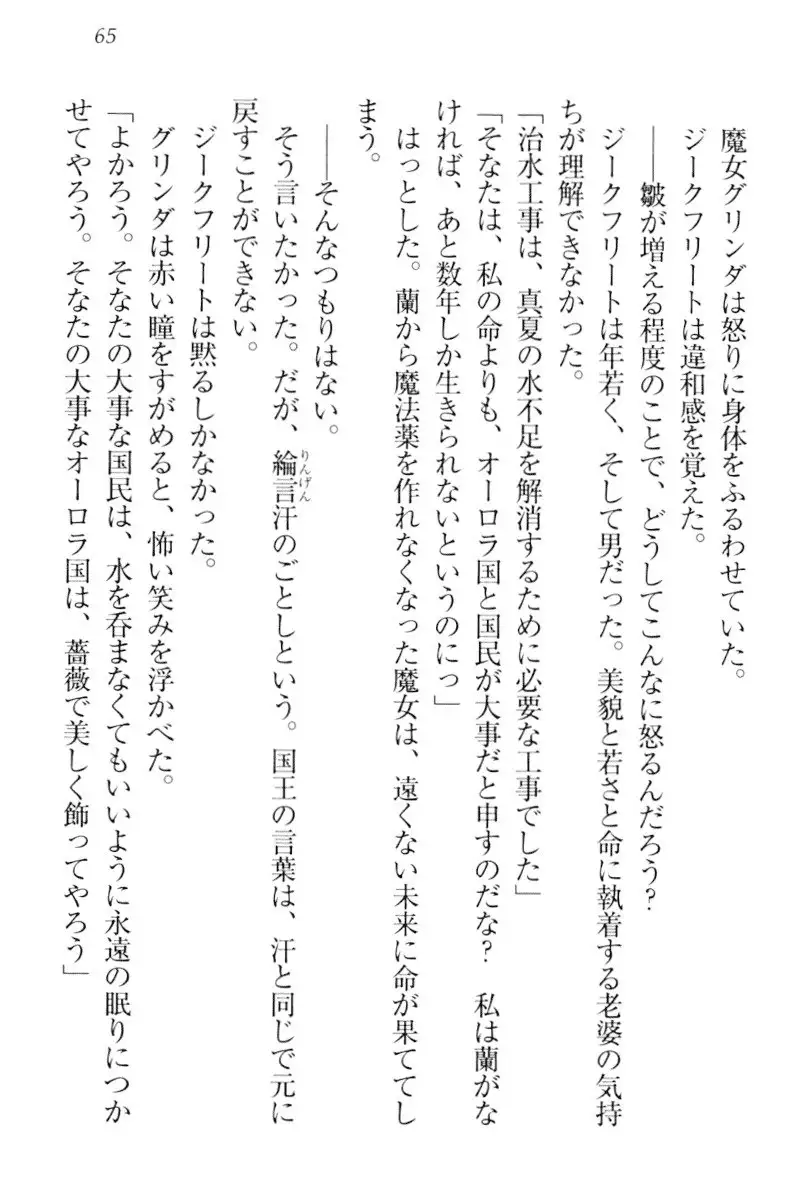 65
魔女グリンダは怒りに身体をふるわせていた。
ジークフリートは違和感を覚えた。
――皺が増える程度のことで、どうしてこんなに怒るんだろう？
ジークフリートは年若く、そして男だった。美貌と若さと命に執着する老婆の気持
ちが理解できなかった。
「治水工事は、真夏の水不足を解消するために必要な工事でした」
「そなたは、私の命よりも、オーロラ国と国民が大事だと申すのだな？　私は蘭がな
ければ、あと数年しか生きられないというのにっ」
はっとした。蘭から魔法薬を作れなくなった魔女は、遠くない未来に命が果ててし
まう。
――そんなつもりはない。
そう言いたかった。だが、綸言汗のごとしという。国王の言葉は、汗と同じで元に
りんげん
戻すことができない。
ジークフリートは黙るしかなかった。
グリンダは赤い瞳をすがめると、怖い笑みを浮かべた。
「よかろう。そなたの大事な国民は、水を呑まなくてもいいように永遠の眠りにつか
せてやろう。そなたの大事なオーロラ国は、薔薇で美しく飾ってやろう」